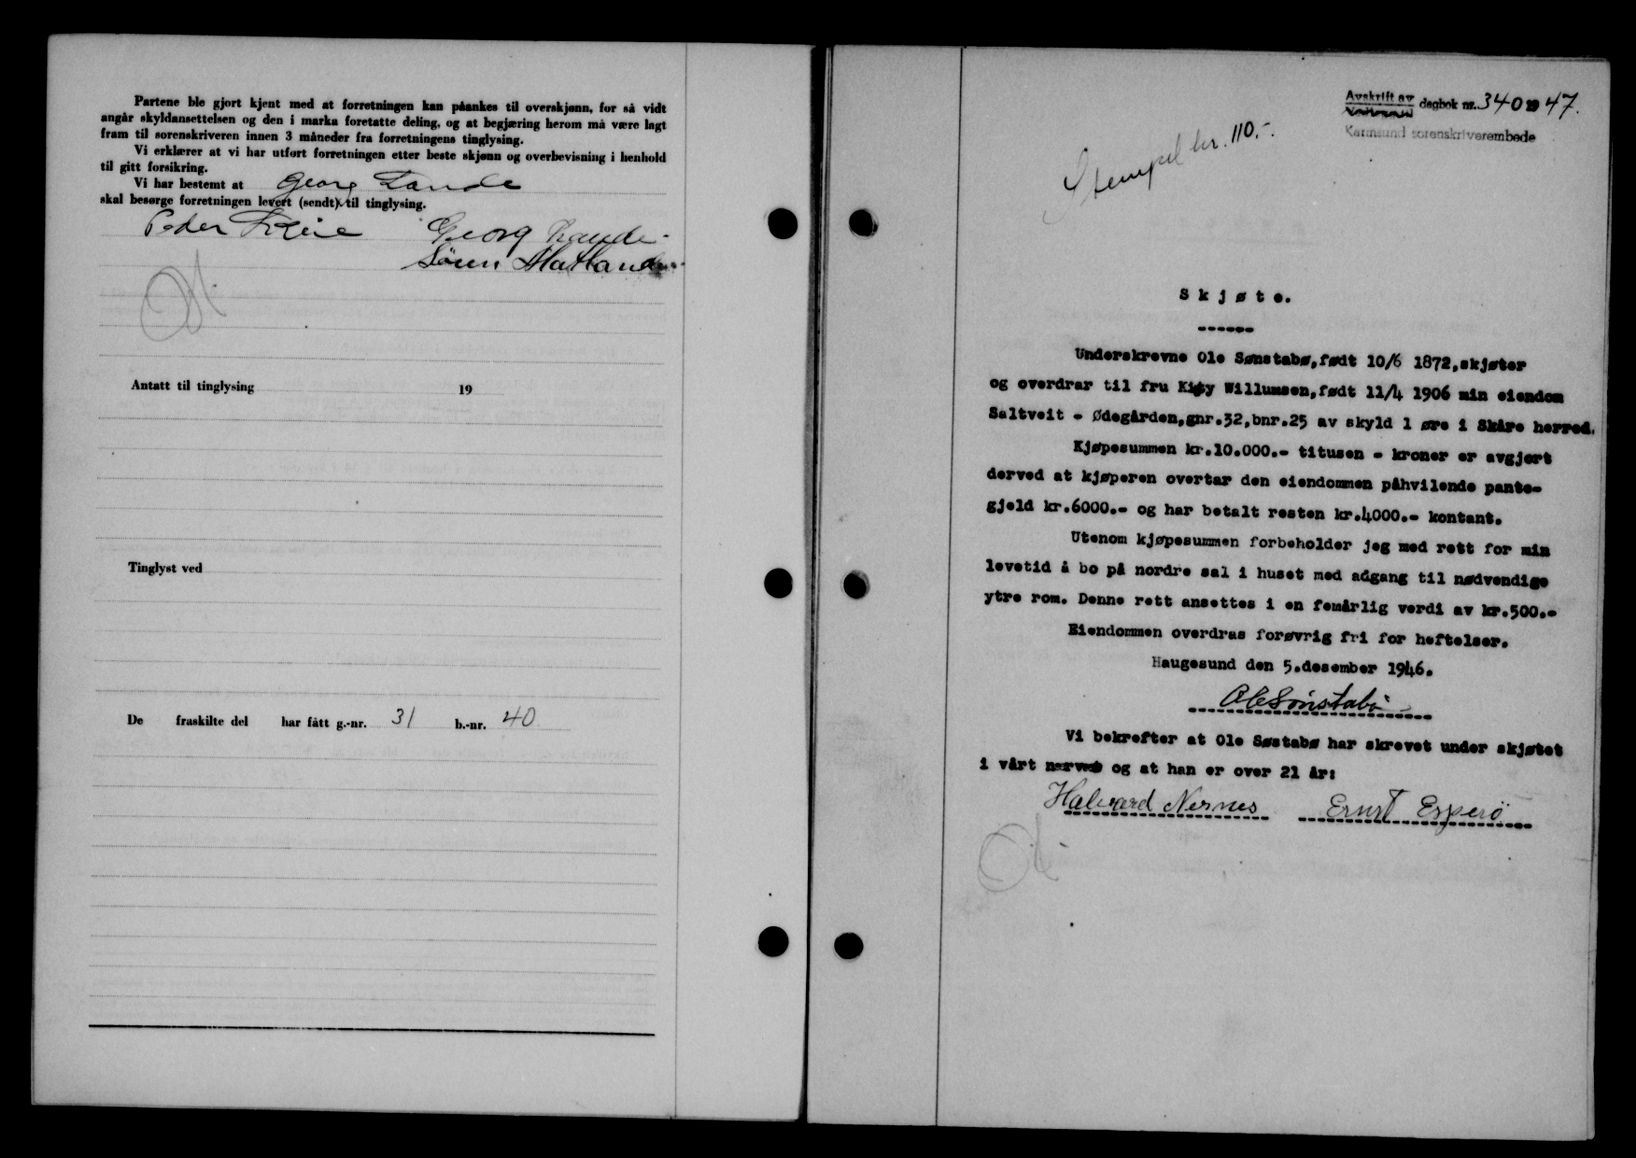 Partene ble gjort kjent med at forretningen kan påankes til overskjønn, for så vidt
angår skyldansettelsen og den i marka foretatte deling, og at begjæring herom må være lagt
fram til sorenskriveren innen 3 måneder fra forretningens tinglysing.
Vi erklærer at vi har utført forretningen etter beste skjønn og overbevisning i henhold
til gitt forsikring.
Vi har bestemt at Georg Lande
skal besørge forretningen levert (sendt) til tinglysing.
Peder Georg Lande
Søren Matland
Antatt til tinglysing 19
Tinglyst ved
De fraskilte del har fått g.-nr. 31 b.-nr. 40
Avskrift av dagbok nr. 340 1947.
Karmsund sorenskriverembede
Stempel kr. 110.-
Skjøte.
------
Underskrevne Ole Sønstabø, født 10/6 1872, skjøter
og overdrar til fru Kitty Willumsen, født 11/4 1906 min eiendom
Saltveit - Ødegården, gnr.32, bnr.25 av skyld 1 øre i Skåre herred.
Kjøpesummen kr.10.000.- titusen - kroner er avgjort
derved at kjøperen overtar den eiendommen påhvilende pante-
gjeld kr.6000.- og har betalt resten kr.4000.- kontant.
Utenom kjøpesummen forbeholder jeg med rett for min
levetid å bo på nordre sal i huset med adgang til nødvendige
ytre rom. Denne rett ansettes i en femårlig verdi av kr.500.-
Eiendommen overdras forøvrig fri for heftelser.
Haugesund den 5.desember 1946.
Ole Sønstabø
Vi bekrefter at Ole Søstabø har skrevet under skjøtet
i vårt nærvær og at han er over 21 år:
Halvard Nernes Ernst Esperö